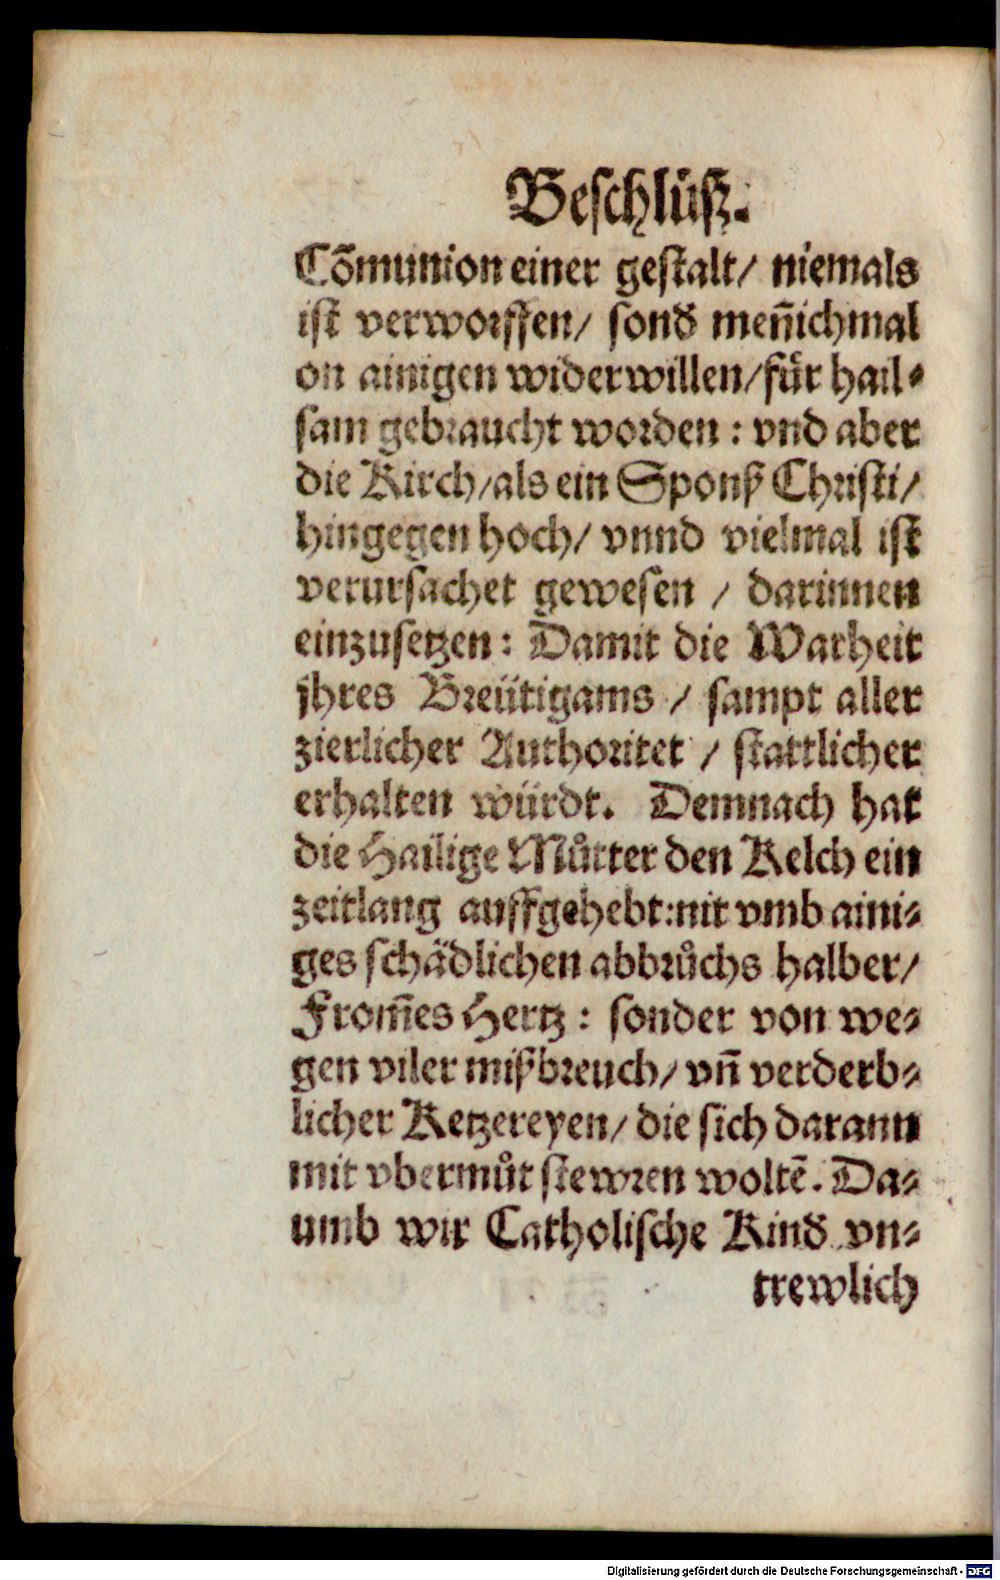 Beſchlůſʒ.
Cõmunion einer geſtalt/ niemals
iſt verworffen/ ſond' meñichmal
on ainigen widerwillen/für hail⸗
ſam gebraucht worden : vnd aber
die Kirch/als ein Sponß Chriſti/
hingegen hoch/ vnnd vielmal iſt
verurſachet geweſen / darinnen
einzuſetzen : Damit die Warheit
jhres Breütigams / ſampt aller
zierlicher Authoritet / ſtattlicher
erhalten würdt. Demnach hat
die Hailige Můtter den Kelch ein
zeitlang auffgehebt:nit vmb aini⸗
ges ſchädlichen abbrůchs halber/
From̃es Hertz : ſonder von we⸗
gen viler mißbreuch/ vñ verderb⸗
licher Ketzereyen/ die ſich darann
mit vbermůt ſtewren woltẽ. Da⸗
umb wir Catholiſche Kind' vn⸗
trewlich
Digitalisierung gefördert durch die Deutsche Forschungsgemeinschaft - DFG